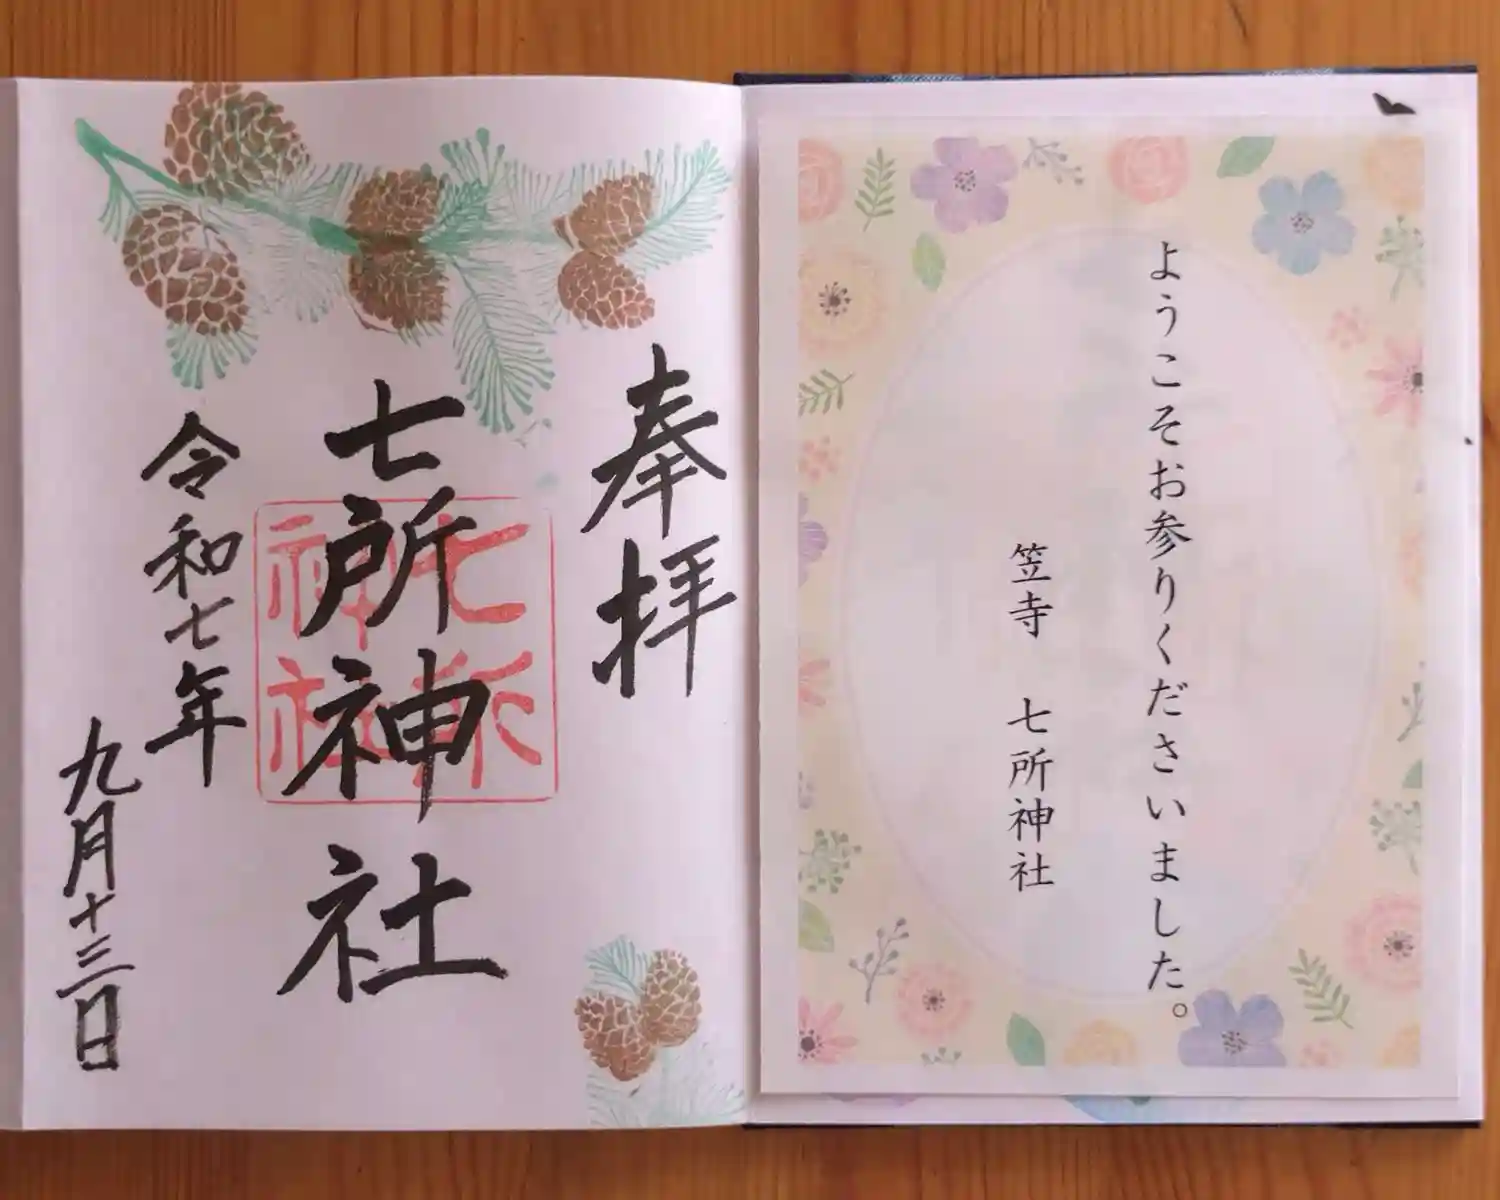 ようこそお参りくださいました。
笠寺　七所神社
奉拝
七所神社
七所神社
令和七年
九月十三日